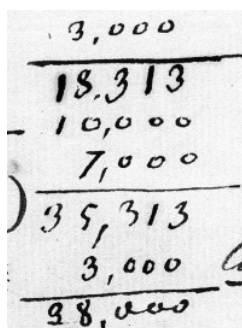 3,000
18.313
10,000
7,000
35,313
3,000
38,000